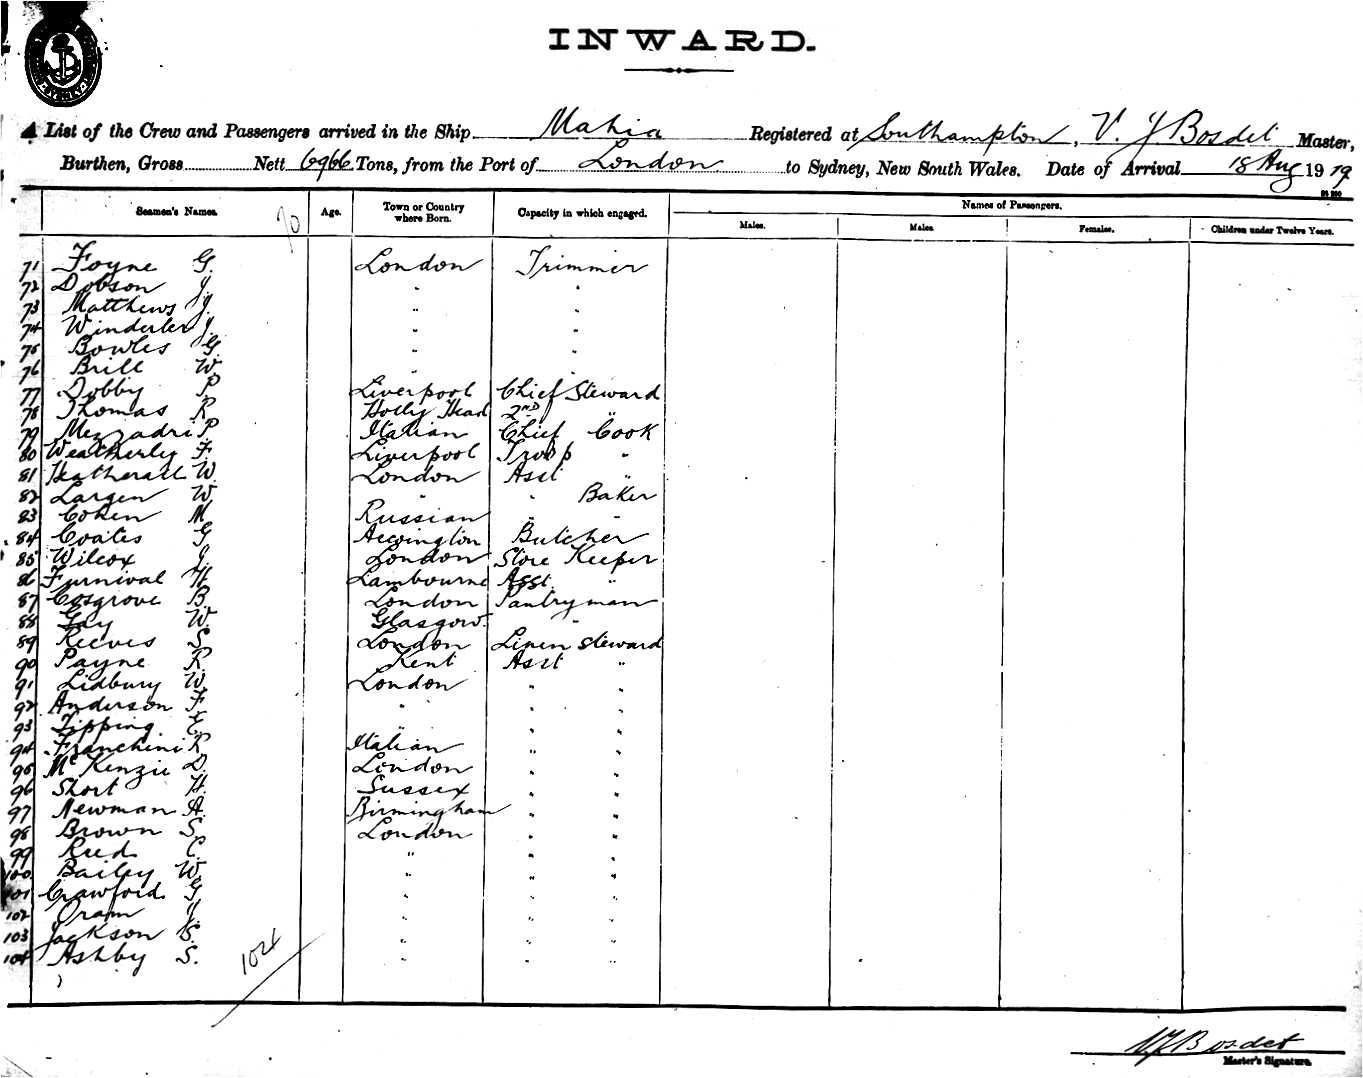 INWARD.
List of the Crew and Passengers arrived in the Ship Mahia Registered at Southampton, V. J. Bosdet Master,
Burthen, Gross Nett 6966 Tons, from the Port of London to Sydney, New South Wales. Date of Arrival 18 Aug 1919
Seamen's Names. 70 Age. Town or Country where Born. Capacity in which engaged. Names of Passengers.
Males. Males. Females. Children under Twelve Years.
71 Foyne G. London Trimmer
72 Dobson J. " "
73 Matthews J. " "
74 J. " "
75 Bowles G. " "
76 Brill W. "
77 Dobby P. Liverpool Chief Steward
78 Thomas R Holly Head 2ND "
79 Mezzadri P. Italian Chief Cook
80 Weatherley F. Liverpool Troop "
81 Heatherall W. London Asst "
82 Largen W " " Baker
83 Cohen M Russian " "
84 Coates G Accrington Butcher
85 Wilcox J London Store Keeper
86 Furnival H Lambourne Asst. "
87 Cosgrove B. London Pantryman
88 Gay W. Glasgow. "
89 Reeves S London Linen Steward
90 Payne R. Kent Asst "
91 Lidbury W. London " "
92 Anderson F " " "
93 Tipping E. " " "
94 Franchini R Italian " "
95 McKenzie D. London " "
96 Short H. Sussex " "
97 Newman A. Birmingham " "
98 Brown S. London " "
99 Reed C. " " "
100 Bailey W. " " "
101 Crawford G " " "
102 Oram J. " " "
103 Jackson S. " " "
104 Ashby S. " " "
104
V J Bosdet
Master's Signature.